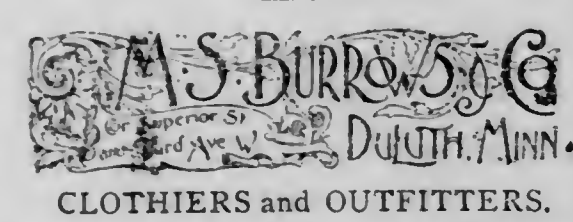 A.S. BURROWS & Co
Cor Superior St
and Third Ave W.
DULUTH, MINN.
CLOTHIERS and OUTFITTERS.